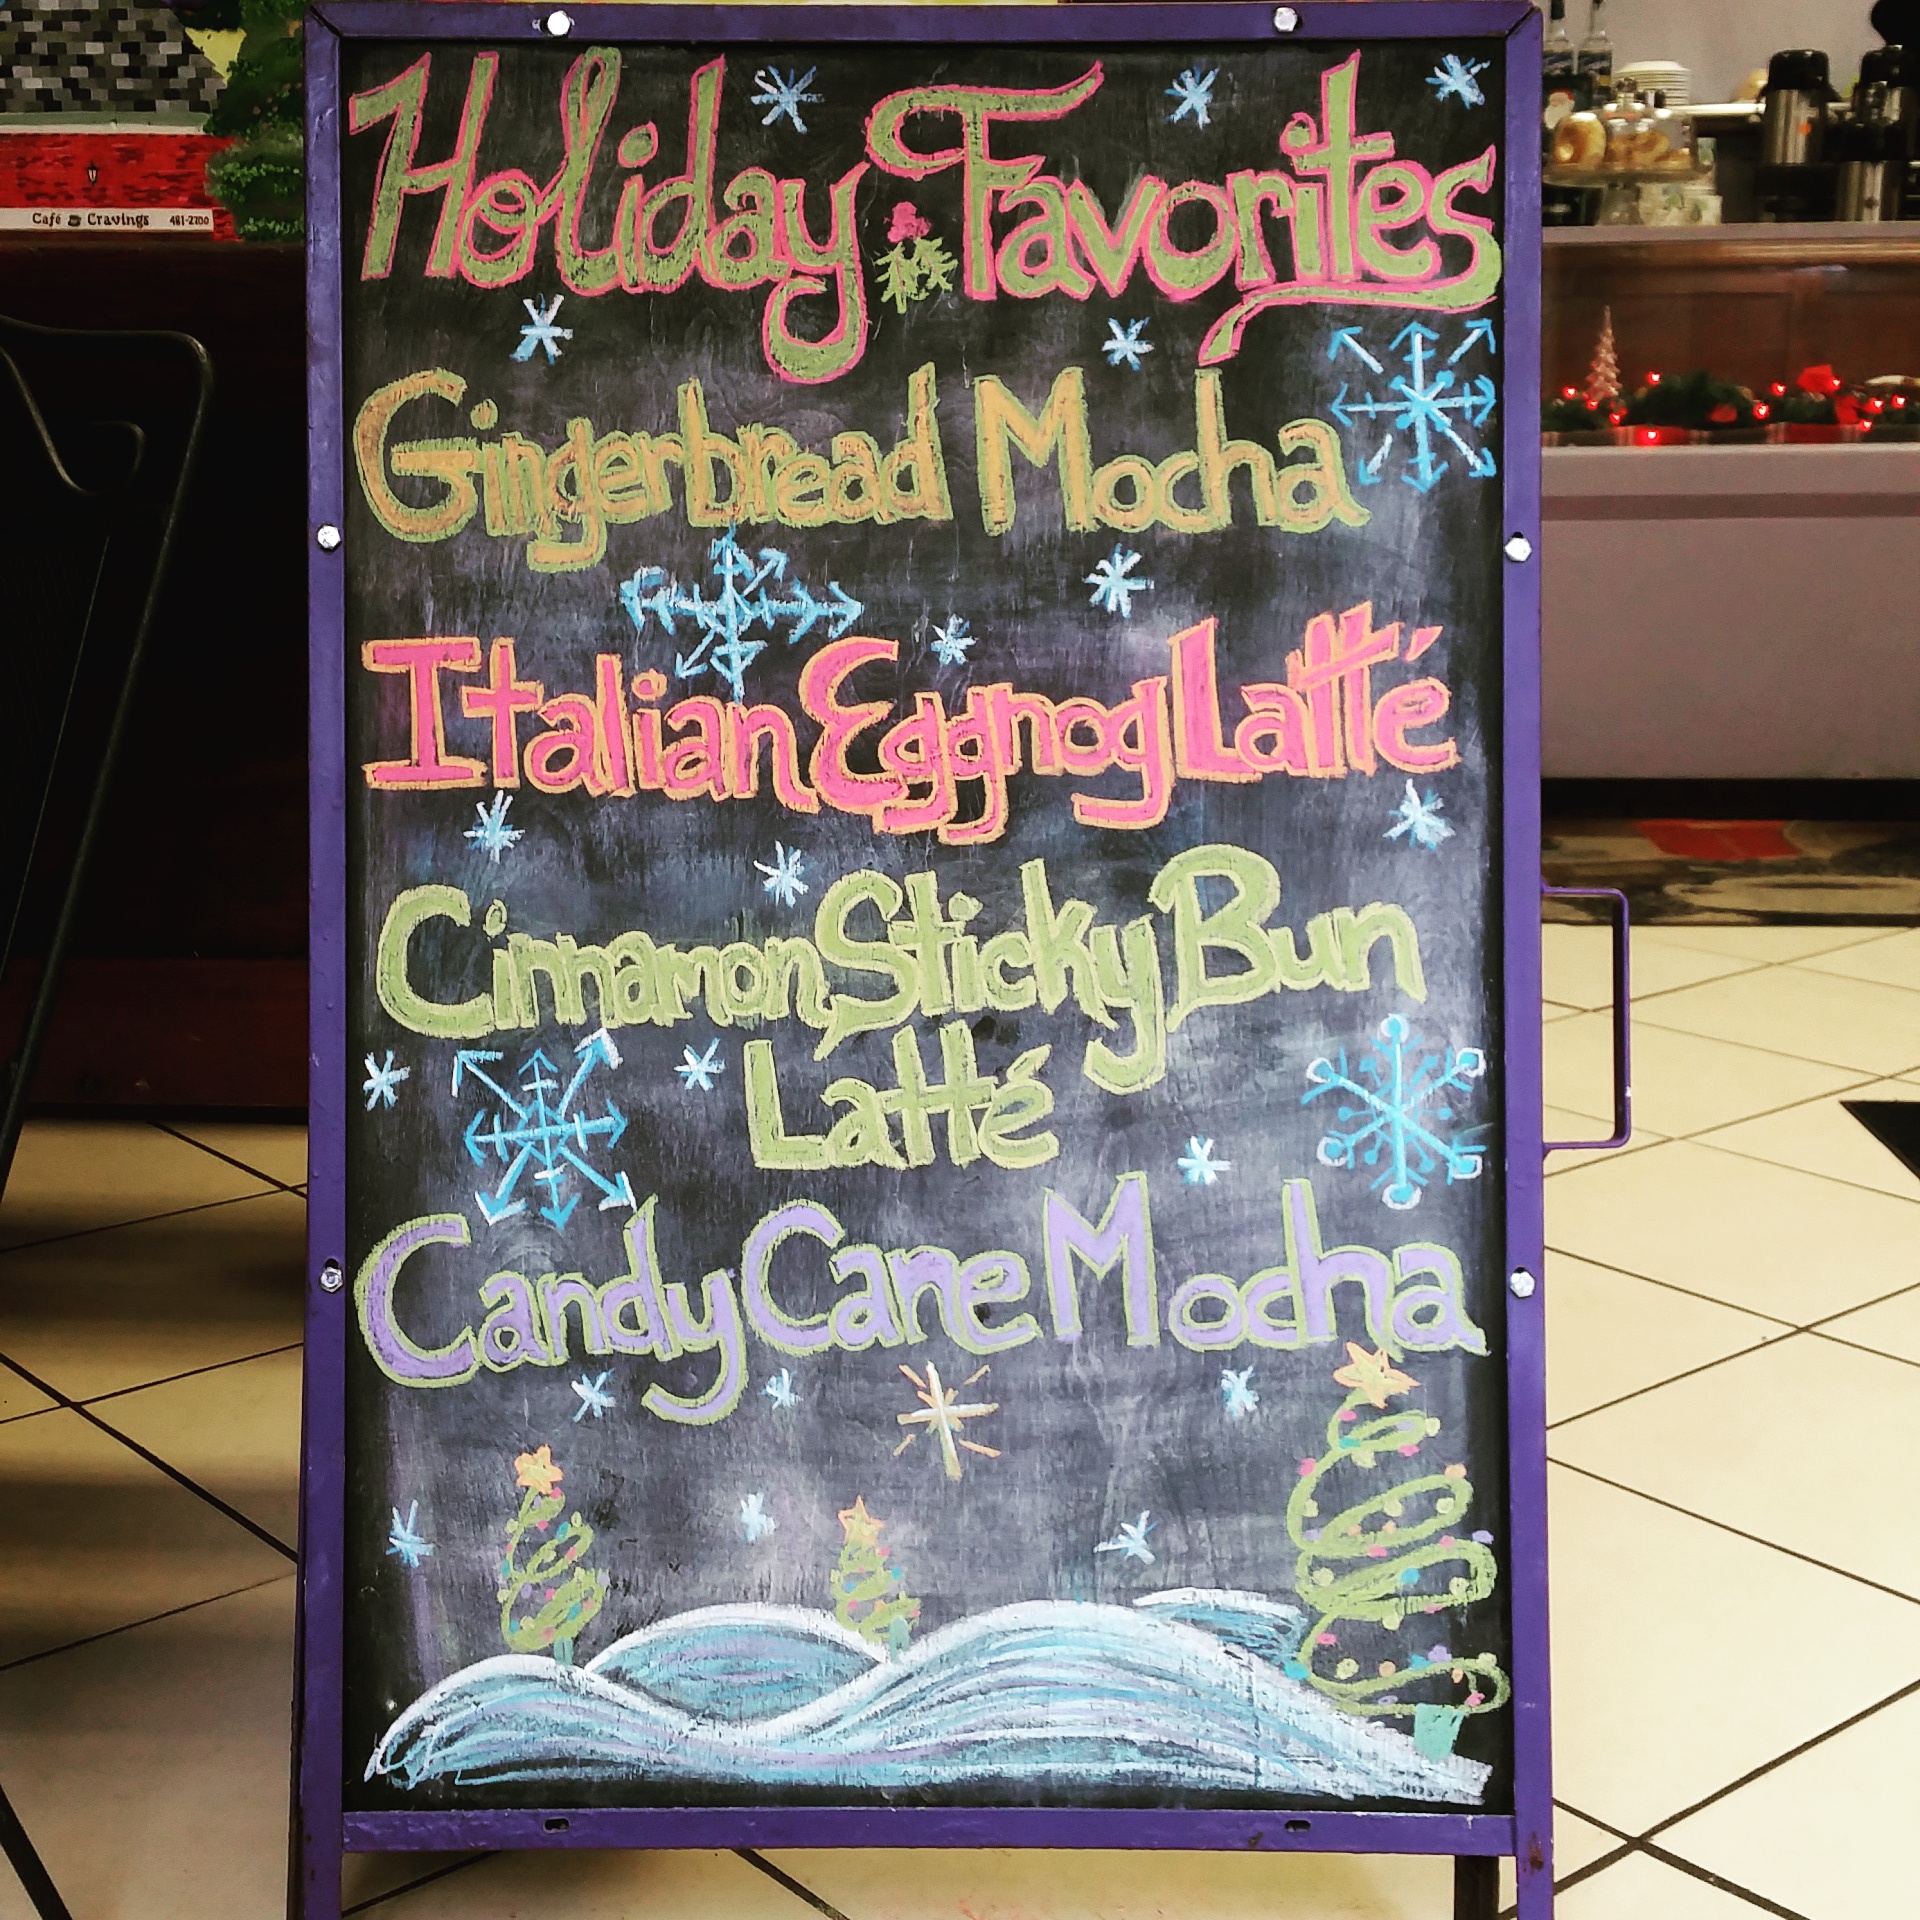 Holiday Favorites
Café Cravings 481-2700
Gingerbread Mocha
Italian Eggnog Latté
Cinnamon Sticky Bun
Latté
Candy Cane Mocha